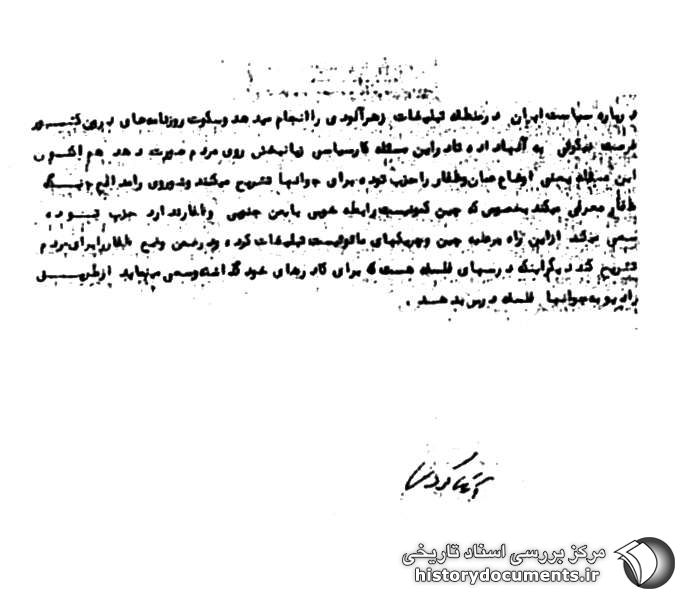 درباره سیاست ایران در منطقه تبلیغات زهرآلودی را انجام میدهد و سکوت روزنامه‌های برون کشور
فرصت نیکوئی به آنها داده تا در این مسئله کار سیاسی زیانبخش روی مردم صورت دهد هم اکنون
این مسئله یعنی اوضاع عمان و ظفار را حزب توده برای جوانها تشریح میکند و شوروی را مدافع جنگ
ظفار معرفی میکند بخصوص که چین کمونیست رابطه خوبی با یمن جنوبی و ظفار ندارد حزب توده
سعی میکند از این راه بر علیه چین و چریکهای مائوئیست تبلیغات کرده و در ضمن وضع ظفار را برای مردم
تشریح کند دیگر اینکه درسهای فلسفه هست که برای کادرهای خود گذاشته و سعی مینماید از طریق
رادیو به جوانها فلسفه درس بدهد .
مرکز بررسی اسناد تاریخی
historydocuments.ir